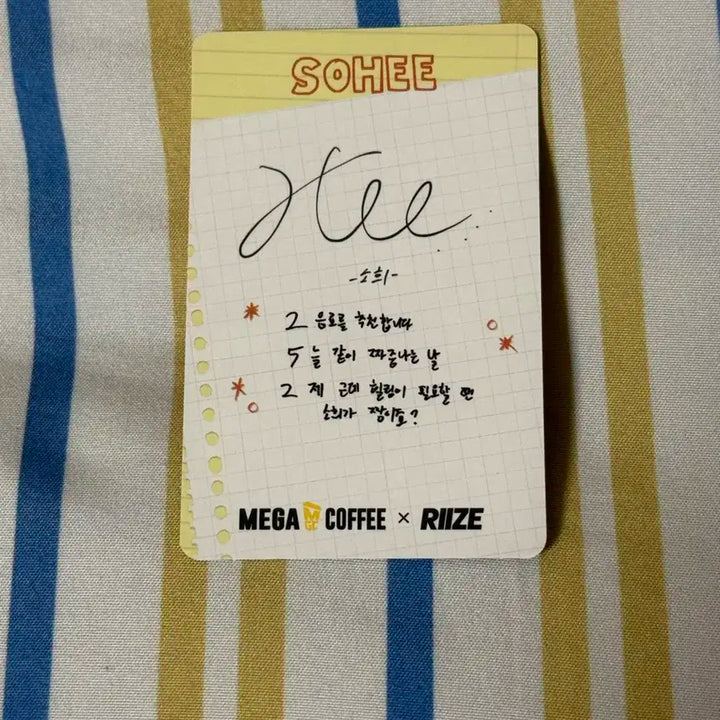 SOHEE
Hee
-소희-
2 음료를 추천합니다
5 늘 같이 짜증나는 날
2 제 근데 힐링이 필요할 땐
소희가 짱이죠?
MEGA MGC COFFEE × RIIZE